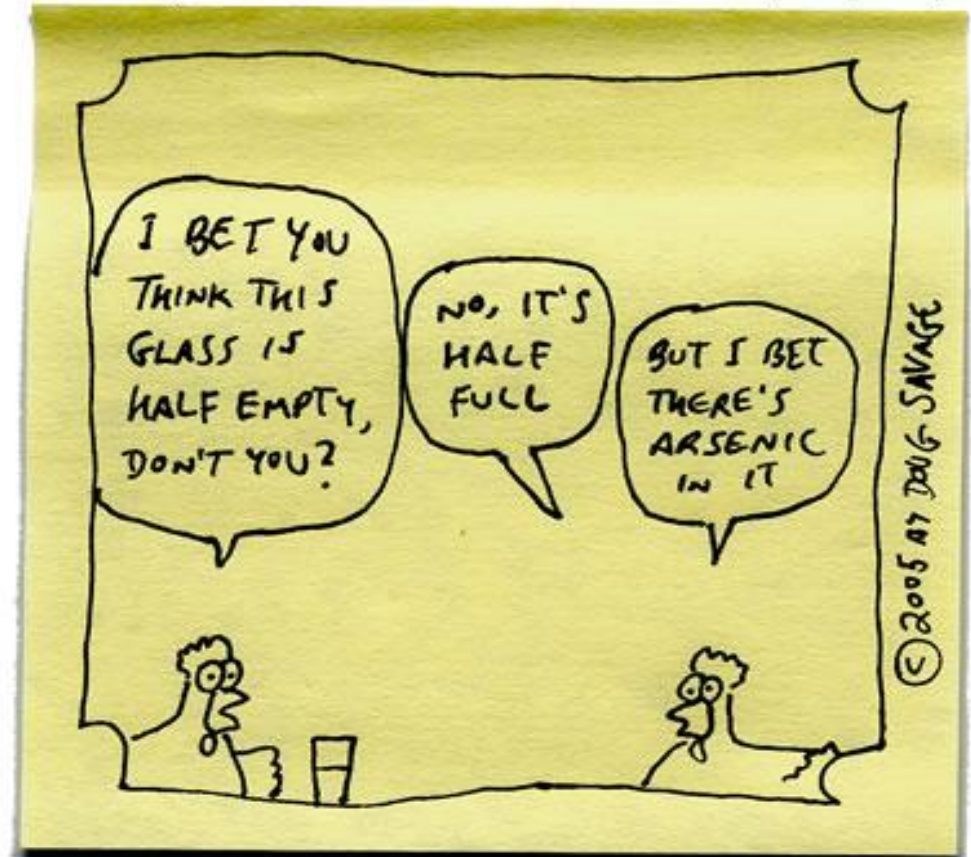 I BET YOU
THINK THIS
GLASS IS
HALF EMPTY,
DON'T YOU?
NO, IT'S
HALF
FULL
BUT I BET
THERE'S
ARSENIC
IN IT
© 2005 BY DOUG SAVAGE